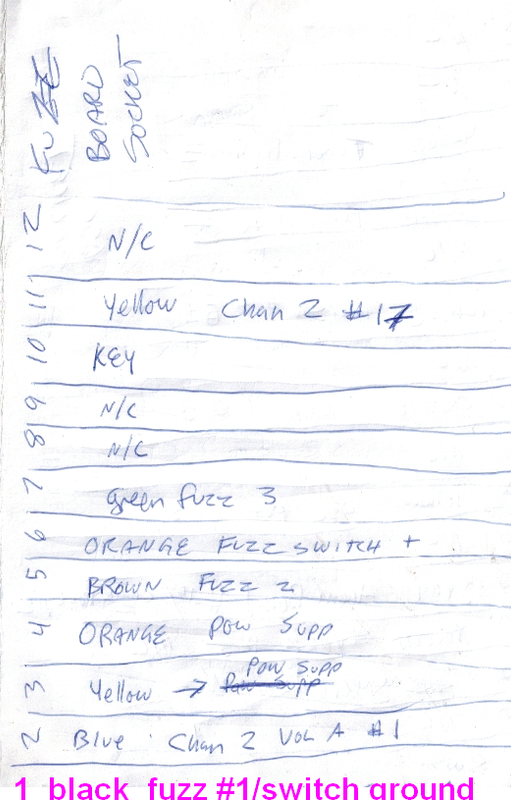 FUZZ
BOARD
SOCKET
12 N/C
11 Yellow Chan 2 #17
10 KEY
9 N/C
8 N/C
7 green fuzz 3
6 ORANGE FUZZ SWITCH +
5 BROWN FUZZ 2
4 ORANGE POW SUPP
3 Yellow → Pow Supp
2 Blue Chan 2 VOL A #1
1 black fuzz #1/switch ground